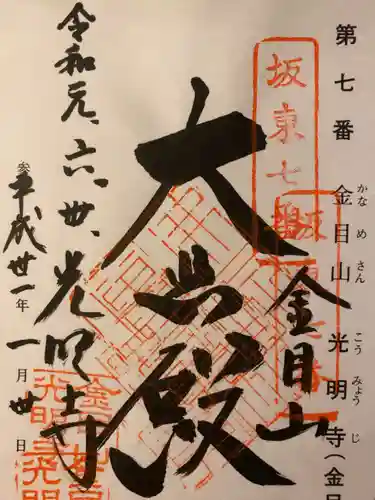 第七番 金目山光明寺(金目
かなめさん こうみょうじ
坂東七番
金目山
大悲殿
光明寺
令和元、六、卅、
参
平成卅一年一月卅日